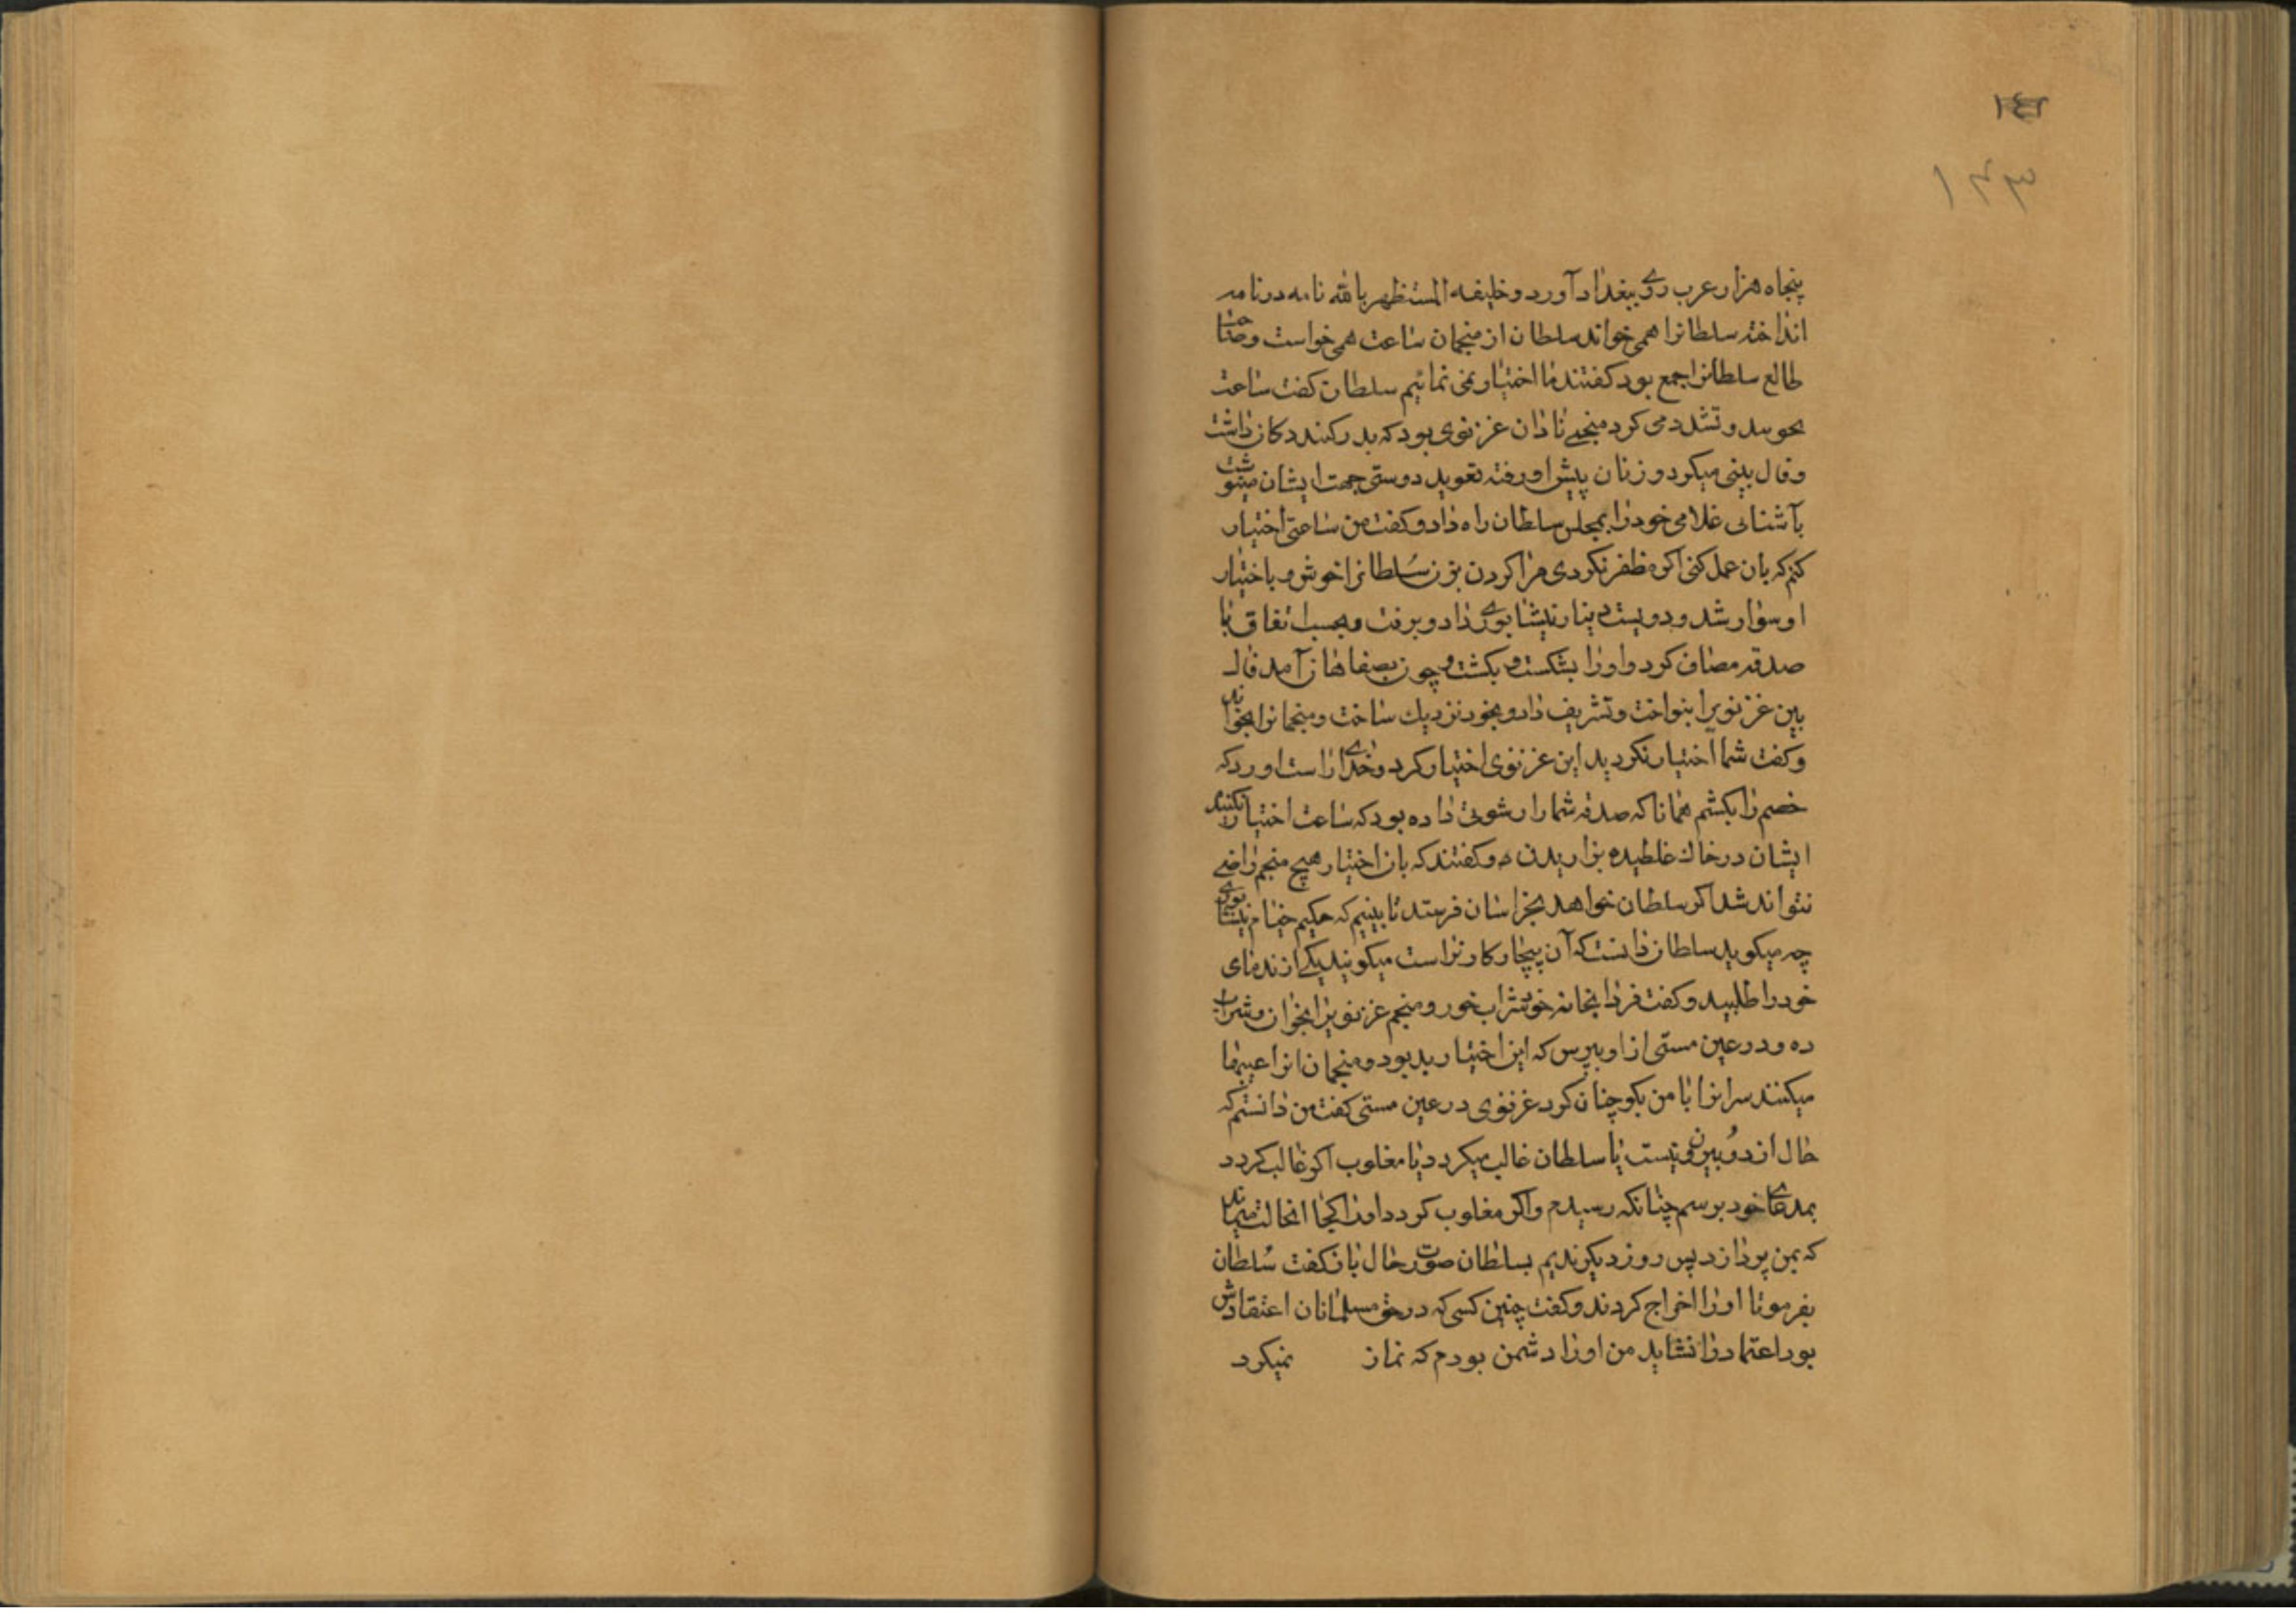 ۱۴۲
۱۴۳
پنجاه هزار عرب روی ببغداد آورد و خلیفه المستظهر بالله نامه در نامه
انداخته سلطانرا همی خواند سلطان از منجمان ساعت همی خواست و صاحب
طالع سلطانرا جمع بود کفتند ما اختیار نمی نمائیم سلطان کفت ساعت
بجوید و تشدد می کرد منجمی نادان غزنوی بود که بدر کنبد دکان داشت
و فال بینی میکرد و زنان پیش او رفته تعوید دوستی جهت ایشان مینوشت
بآشنائی غلامی خود را بمجلس سلطان راه داد و کفت من ساعتی اختیار
کنم که بان عمل کنی اکر مظفر نکردی مرا کردن بزن سُلطانرا خوش و باختیار
او سوار شد و دویست دینار نیشابوری داد و برفت و بحسب اتفاق با
صدقه مصاف کرد و او را بشکست و بکشت و چون بصفاهان آمد فال
بین غزنویرا بنواخت و تشریف داد و بخود نزدیك ساخت و منجمانرا بخواند
و کفت شما اختیار نکردید این غزنوی اختیار کرد و خدای راست اورد که
خصم را بکشم همانا که صدقه شما را رشوتی داده بود که ساعت اختیار نکنید
ایشان در خاك غلطیده بزاریدند و کفتند که بان اختیار هیچ منجم راضی
نتواند شد اکر سلطان خواهد بخراسان فرستد تا بینیم که حکیم خیام نیشابوری
چه میکوید سلطان دانست که آن بیچارکان راست میکویند یکی از ندمای
خود را طلبید و کفت فردا بخانه خود شراب خور و منجم غزنویرا بخوان و شراب
ده و در عین مستی از او بپرس که این اختیار بد بود و منجمان انرا عیبها
میکنند سر انرا با من بکو چنان کرد غزنوی در عین مستی کفت من دانستم که
حال از دو بیرون نیست یا سلطان غالب میکردد یا مغلوب اکر غالب کردد
بمدعای خود برسم چنانکه رسیدم و اکر مغلوب کردد او را کجا انحالت میماند
که بمن پردازد پس روز دیکر ندیم بسلطان صورت حال باز کفت سُلطان
بفرمود تا او را اخراج کردند و کفت چنین کسی که در حق مسلمانان اعتقادش
بود اعتماد را نشاید من او را دشمن بودم که نماز نمیکرد